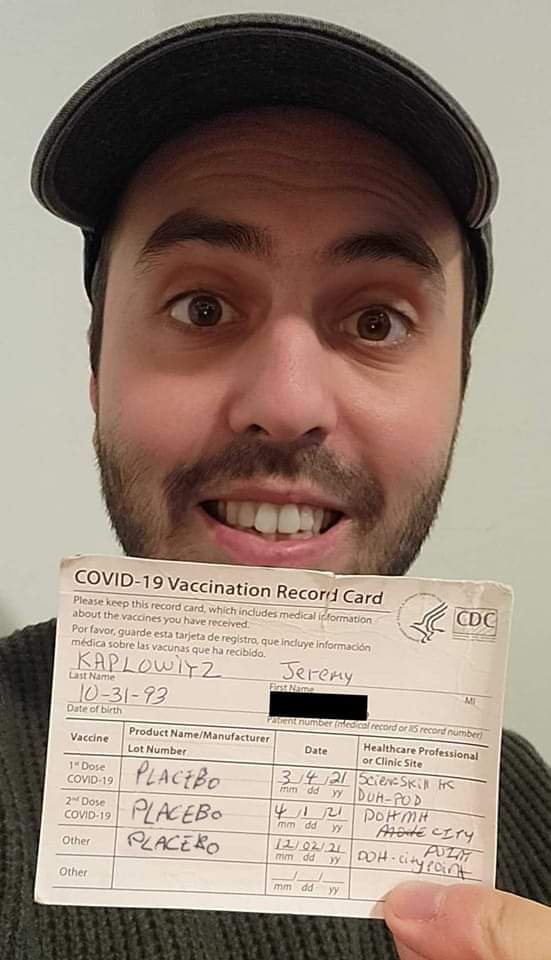 COVID-19 Vaccination Record Card
Please keep this record card, which includes medical information
about the vaccines you have received.
Por favor, guarde esta tarjeta de registro, que incluye información
médica sobre las vacunas que ha recibido.
CDC
KAPLOWITZ Jeremy
Last Name First Name MI
10-31-93
Date of birth Patient number (medical record or IIS record number)
Vaccine Product Name/Manufacturer Date Healthcare Professional
Lot Number or Clinic Site
1st Dose PLACEBO 3/4/21 Science Skill HS
COVID-19 mm dd yy DOH-POD
2nd Dose PLACEBO 4/1/21 DOHMH
COVID-19 mm dd yy CITY
POINT
Other PLACEBO 12/02/21 DOH-city point
mm dd yy
Other / /
mm dd yy